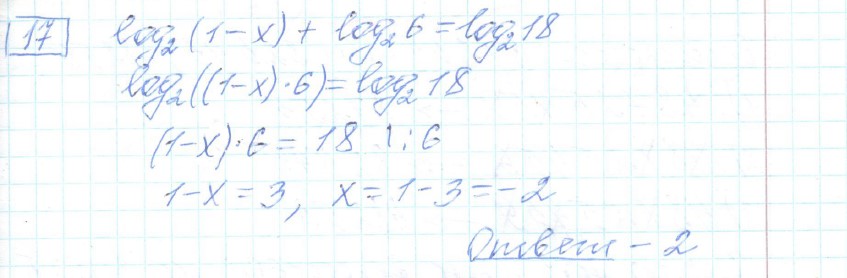 17 log₂(1-x) + log₂6 = log₂18
log₂((1-x)·6) = log₂18
(1-x)·6 = 18 | :6
1-x = 3, x = 1-3 = -2
Ответ -2